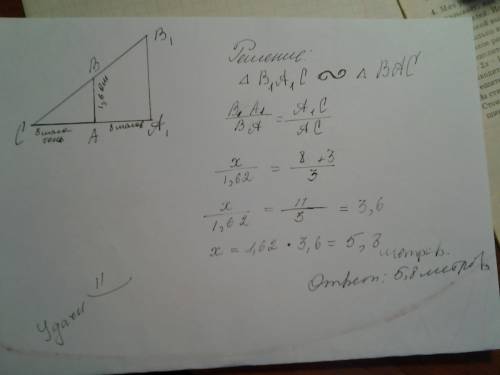 B₁
B
1,62м
C
3 шага
тень
A
8 шагов
A₁
Решение:
△ B₁A₁C ∾ △ BAC
B₁A₁/BA = A₁C/AC
x/1,62 = 8+3/3
x/1,62 = 11/3 = 3,6
x = 1,62 · 3,6 = 5,8 метров.
Ответ: 5,8 метров
Удачи